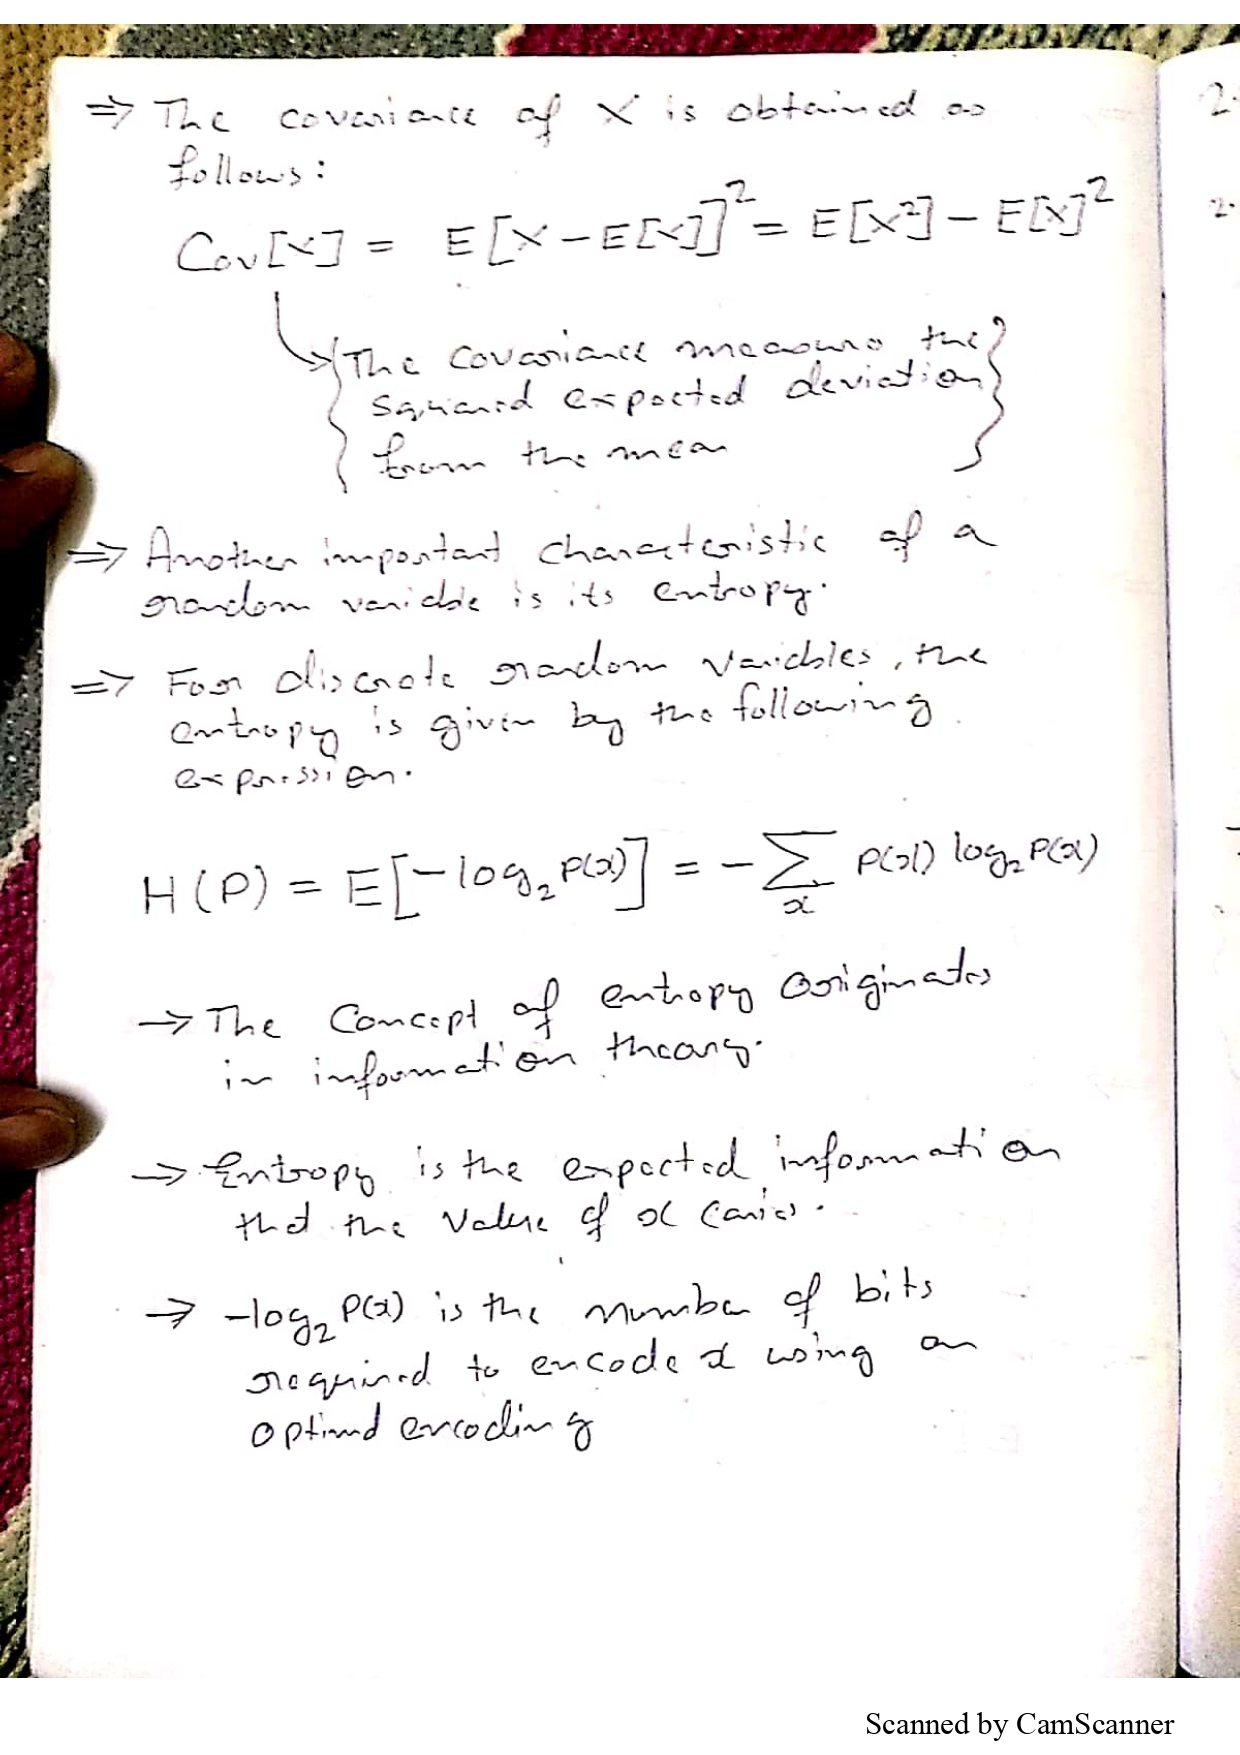 ⇒ The covariance of X is obtained as
follows:
Cov[X] = E[X – E[X]]² = E[X²] – E[X]²
→ {The covariance measures the
squared expected deviation
from the mean}
⇒ Another important characteristic of a
random variable is its entropy.
⇒ For discrete random variables, the
entropy is given by the following
expression.
H(P) = E[-log₂ P(x)] = - ∑ₓ P(x) log₂ P(x)
→ The Concept of entropy originates
in information theory.
→ Entropy is the expected information
that the value of x carries.
→ -log₂ P(x) is the number of bits
required to encode x using an
optimal encoding
2.
2.
Scanned by CamScanner